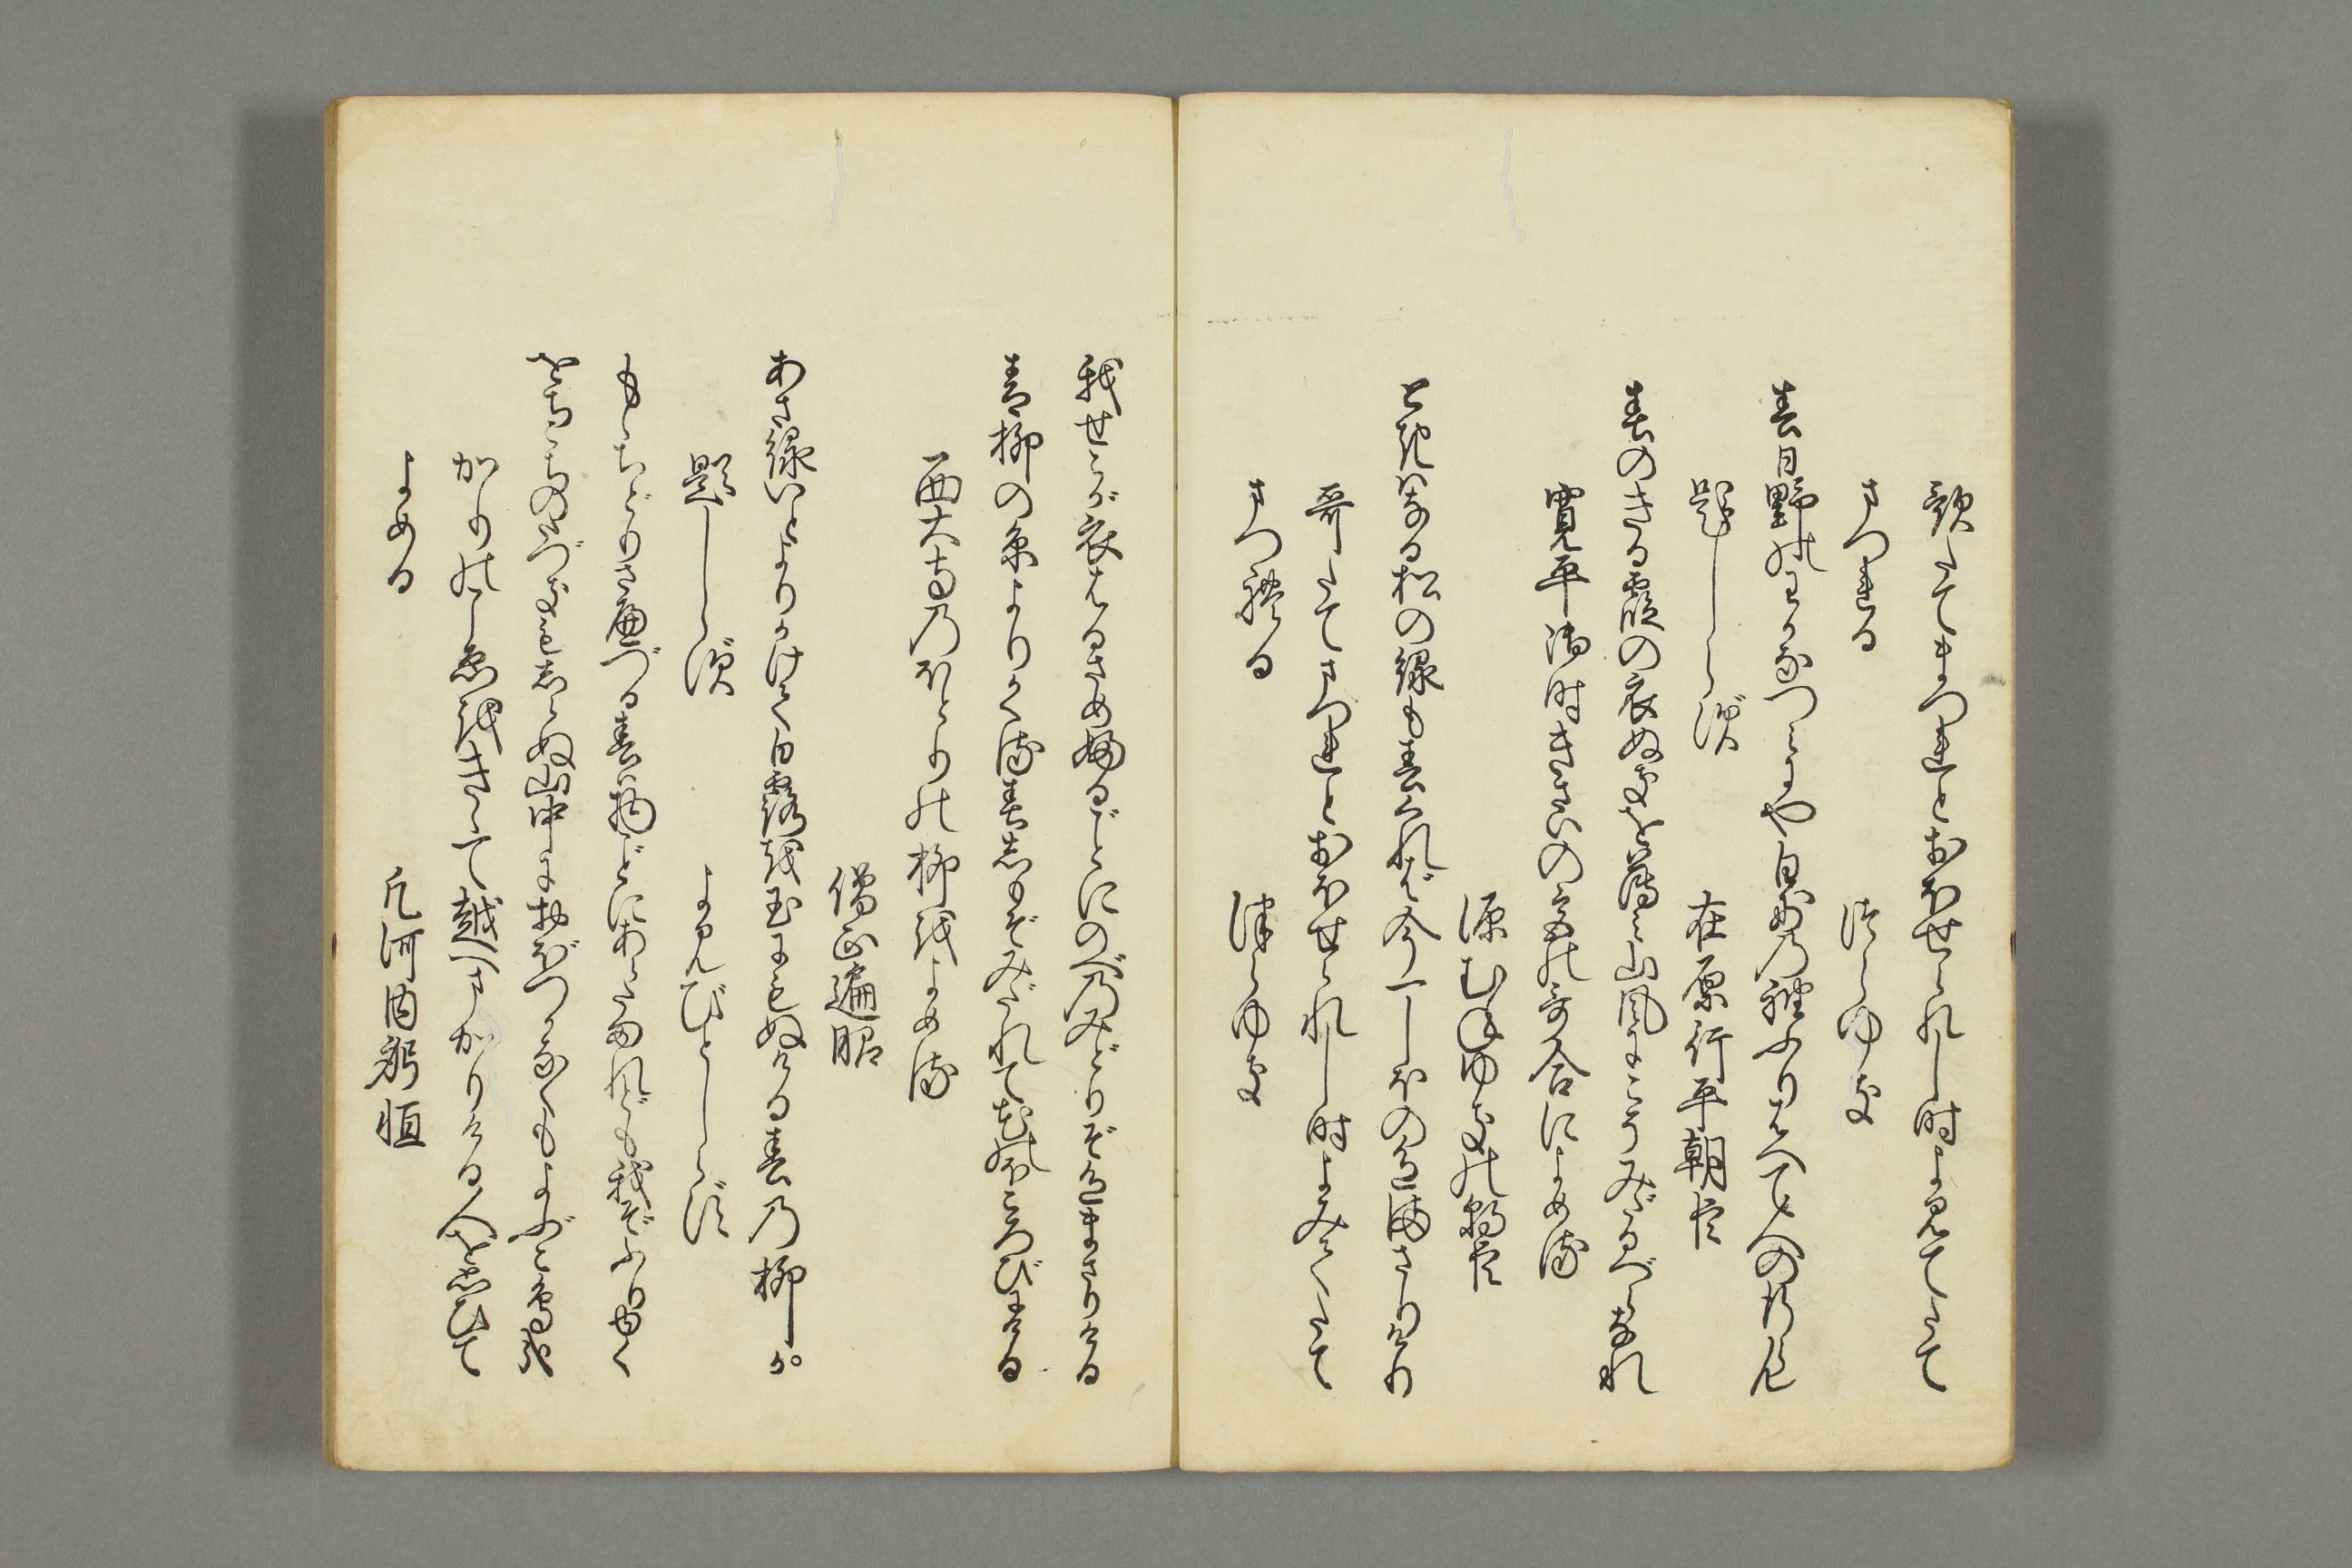 歌たてまつれとおほせられし時よみてたて
まつれる
つらゆき
春日野のわかなつみにや白妙の袖ふりはへて人の行らん
題しらず
在原行平朝臣
春のきる霞の衣ぬきをうすみ山風にこそみだるべらなれ
寛平御時きさいの宮の哥合によめる
源むねゆきの朝臣
ときはなる松の緑も春くれば今一しほの色まさりけり
哥たてまつれとおほせられし時よみてたて
まつれる
つらゆき
我せこが衣はるさめふるごとにのべのみどりぞ色まさりける
青柳の糸よりかくる春しもぞみだれて花のほころびにける
西大寺のほとりの柳をよめる
僧正遍昭
あさ緑いとよりかけて白露を玉にもぬける春の柳か
題しらず
よみびとしらず
もゝちどりさへづる春は物ごとにあらたまれども我ぞふり行く
をちこちのたづきもしらぬ山中におぼつかなくもよぶこ鳥哉
かりのこゑをきゝて越へまかりける人を思ひて
よめる
凡河内躬恒